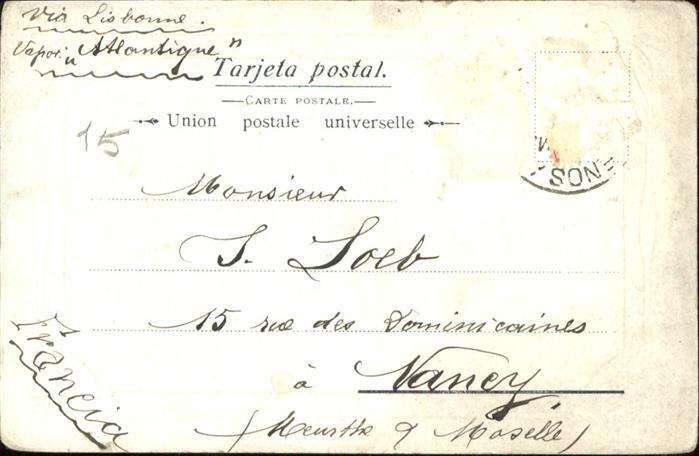 Via Lisbonne.
Vapor: "Atlantique"
Tarjeta postal.
CARTE POSTALE.
Union postale universelle
15
ENOS
Monsieur
S. Loeb
15 rue des Dominicaines
à Nancy.
(Meurthe & Moselle)
Francia